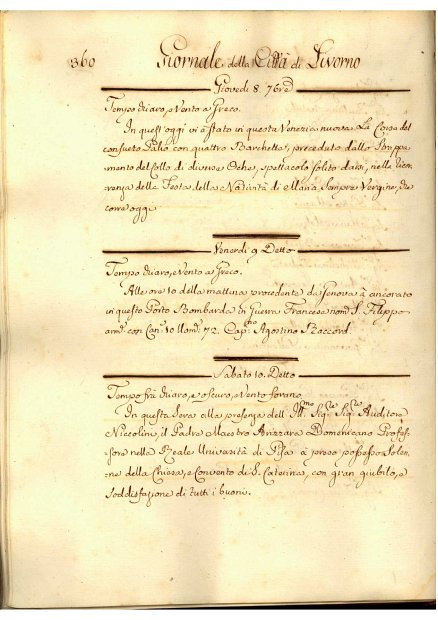 360 Giornale della Città di Livorno
Giovedi 8. 7bre
Tempo chiaro, e Vento a Greco.
In quest'oggi vi è stato in questa Venezia nuova La Corsa del
consueto Palio con quattro Barchette, preceduta dallo Strappa-
mento del Collo di diverse Oche, spettacolo solito darsi, nella ricor-
renza della Festa della Natività di Maria, Sempre Vergine, che
corre oggi.
Venerdi 9 Detto
Tempo chiaro, e Vento a Greco.
Alle ore 10 della mattina procedente di Genova à ancorato
in questo Porto Bombarda in Guerra Francese nom.a S. Filippo
arm. con Can.i 10 Uom.i 72. Cap.no Agostino Baccord.
Sabato 10. Detto
Tempo frà chiaro, e oscuro, e Vento forano.
In questa Sera alla presenza dell' Ill.mo Sig.re Sig.re Auditore
Niccolini, il Padre Maestro Arizzara Domenicano Profes-
sore nella Reale Università di Pisa à preso possesso Solen-
ne della Chiesa, e Convento di S. Caterina, con gran giubilo, e
soddisfazione di tutti i buoni.